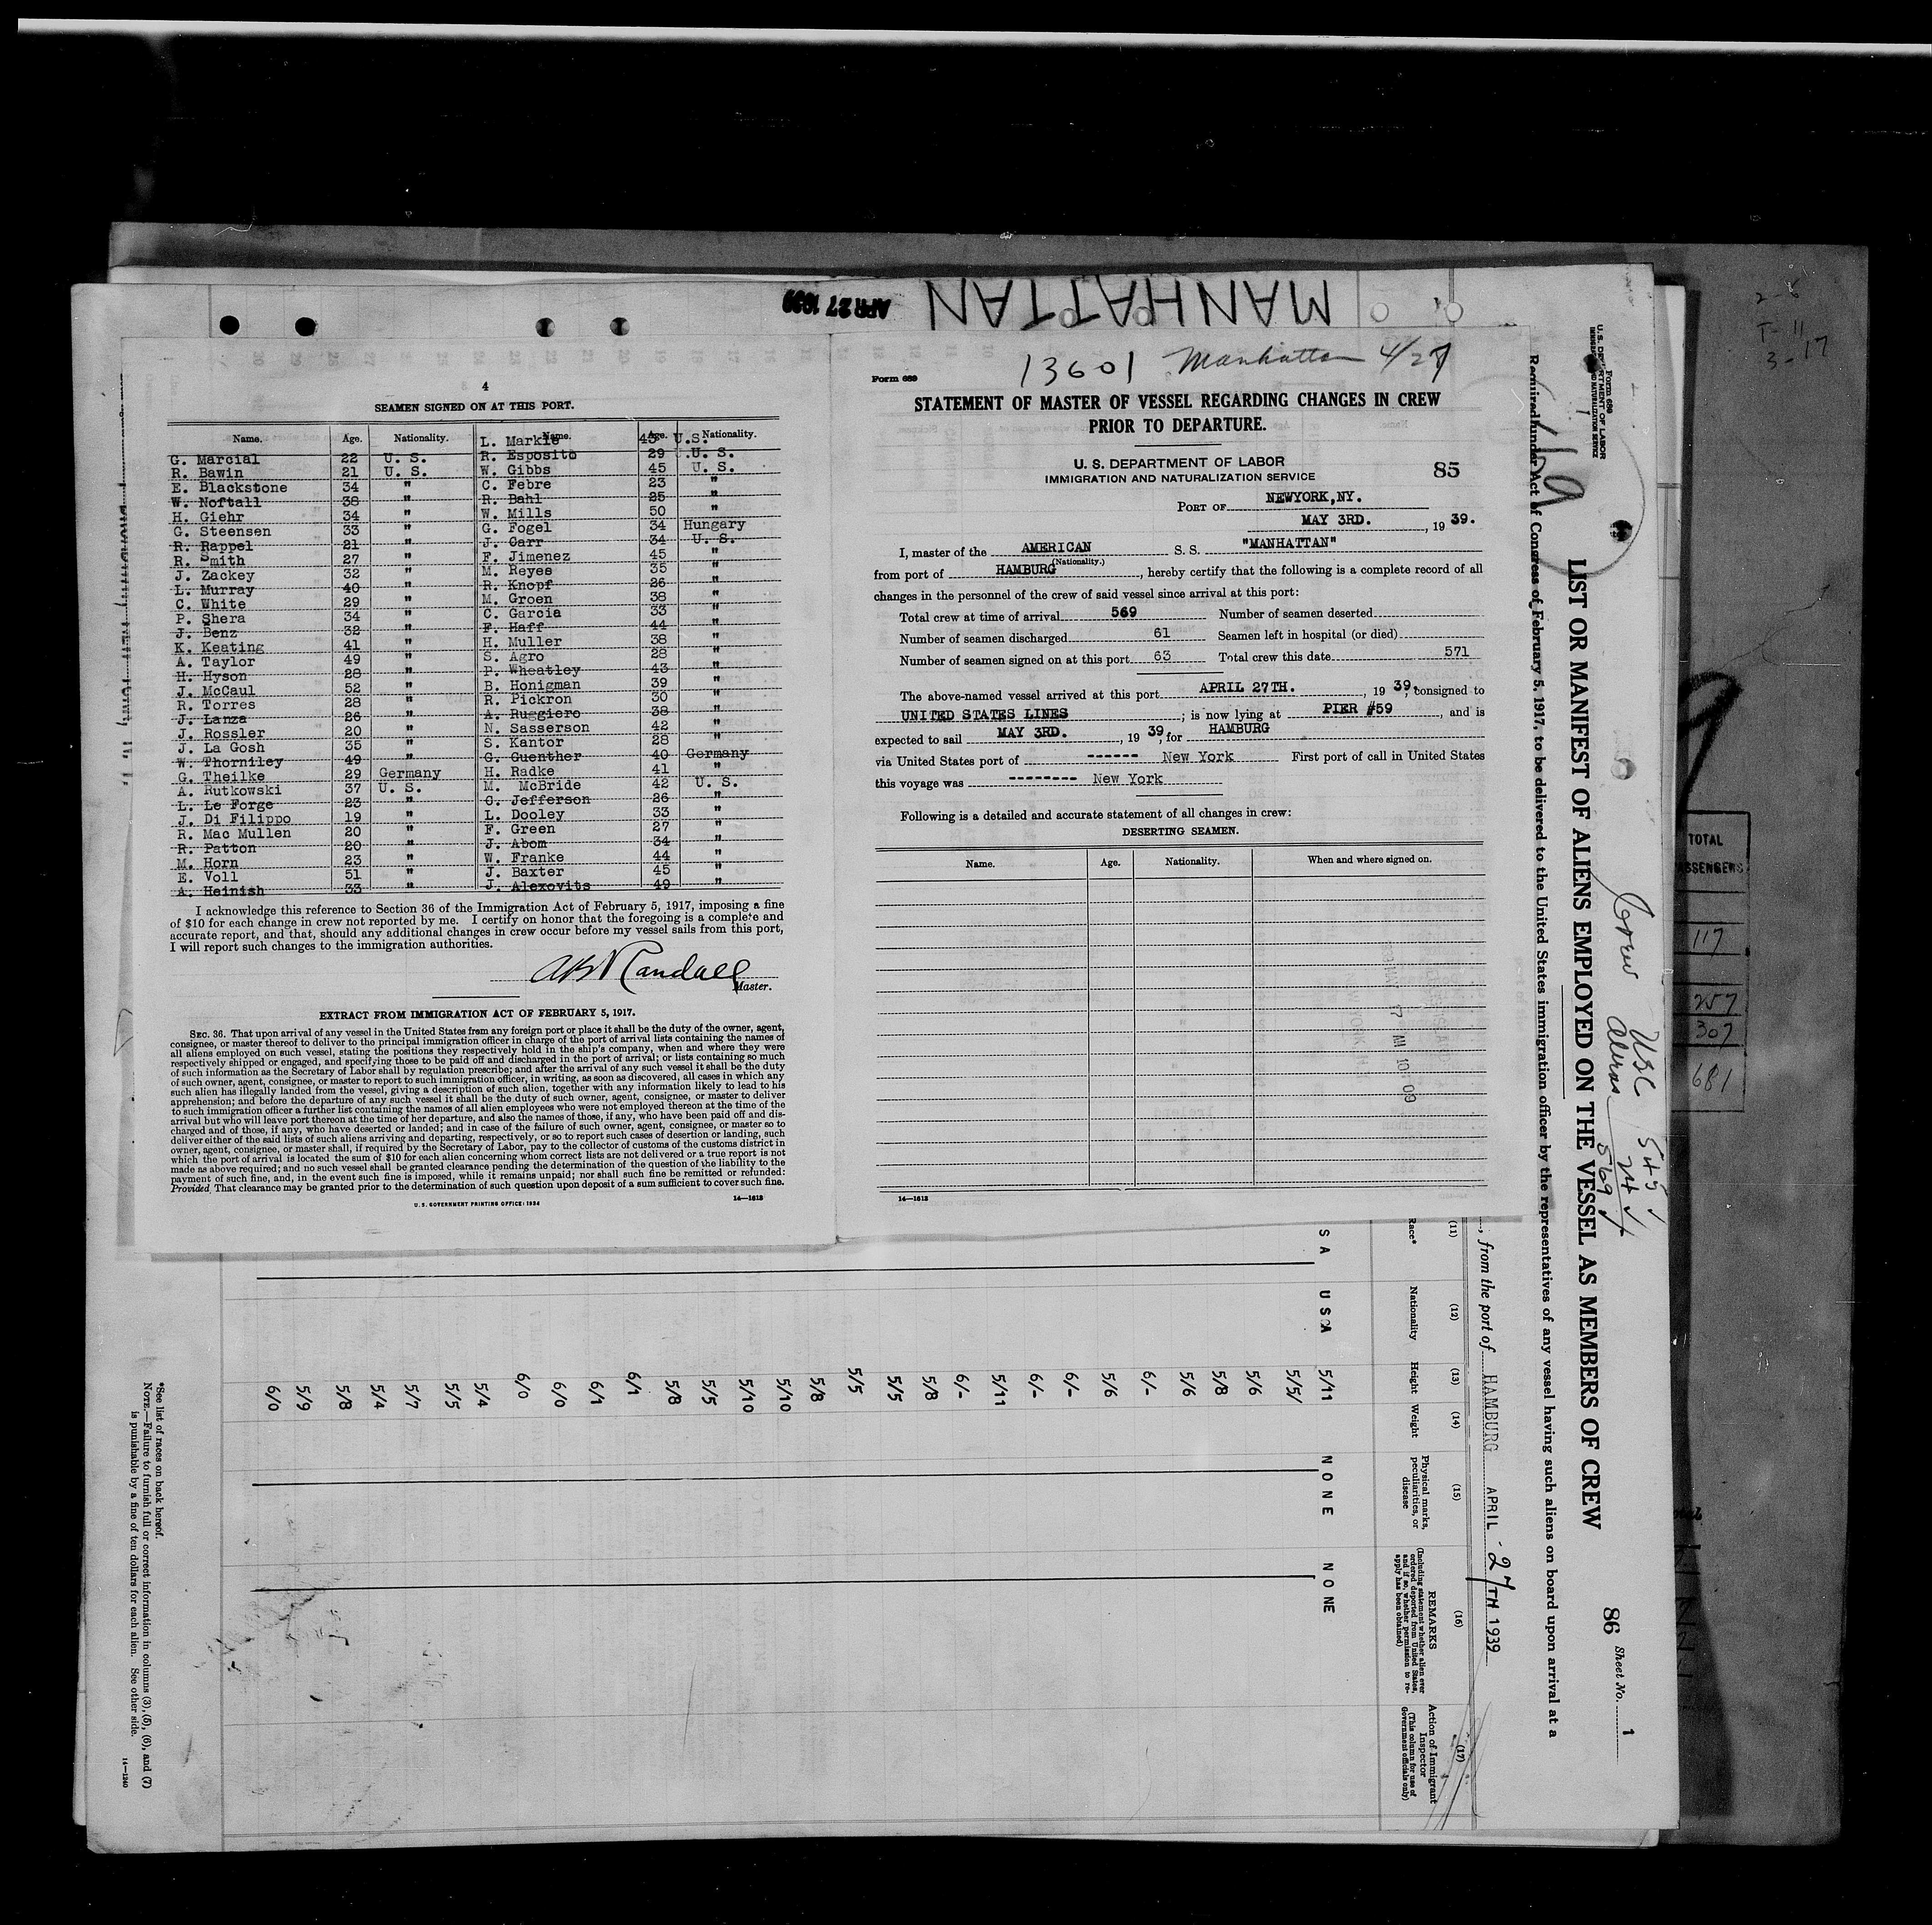 MANHATTAN
APR 27 1939
4
SEAMEN SIGNED ON AT THIS PORT.
Name. Age. Nationality. Name. Age. Nationality.
L. Markle 43 U.S.
G. Marcial 22 U. S. R. Esposito 29 U. S.
R. Bawin 21 U. S. W. Gibbs 45 U. S.
E. Blackstone 34 " C. Febre 23 "
W. Noftall 38 " R. Bahl 25 "
H. Giehr 34 " W. Mills 50 "
G. Steensen 33 " G. Fogel 34 Hungary
R. Rappel 21 " J. Carr 34 U. S.
R. Smith 27 " F. Jimenez 45 "
J. Zackey 32 " M. Reyes 35 "
L. Murray 40 " R. Knopf 26 "
C. White 29 " M. Groen 38 "
P. Shera 34 " C. Garcia 33 "
J. Benz 32 " F. Haff 44 "
K. Keating 41 " H. Muller 38 "
A. Taylor 49 " S. Agro 28 "
H. Hyson 28 " P. Wheatley 43 "
J. McCaul 52 " B. Honigman 39 "
R. Torres 28 " R. Pickron 30 "
J. Lanza 26 " A. Ruggiero 38 "
J. Rossler 20 " N. Sasserson 42 "
J. La Gosh 35 " S. Kantor 28 "
W. Thorniley 49 " G. Guenther 40 Germany
G. Theilke 29 Germany H. Radke 41 "
A. Rutkowski 37 U. S. M. McBride 42 U. S.
L. Le Forge 23 " C. Jefferson 26 "
J. Di Filippo 19 " L. Dooley 33 "
R. Mac Mullen 20 " F. Green 27 "
R. Patton 20 " J. Abom 34 "
M. Horn 23 " W. Franke 44 "
E. Voll 51 " J. Baxter 45 "
A. Heinish 33 " J. Alexovits 49 "
I acknowledge this reference to Section 36 of the Immigration Act of February 5, 1917, imposing a fine
of $10 for each change in crew not reported by me. I certify on honor that the foregoing is a complete and
accurate report, and that, should any additional changes in crew occur before my vessel sails from this port,
I will report such changes to the immigration authorities.
Randall
Master.
EXTRACT FROM IMMIGRATION ACT OF FEBRUARY 5, 1917.
SEC. 36. That upon arrival of any vessel in the United States from any foreign port or place it shall be the duty of the owner, agent,
consignee, or master thereof to deliver to the principal immigration officer in charge of the port of arrival lists containing the names of
all aliens employed on such vessel, stating the positions they respectively hold in the ship's company, when and where they were
respectively shipped or engaged, and specifying those to be paid off and discharged in the port of arrival; or lists containing so much
of such information as the Secretary of Labor shall by regulation prescribe; and after the arrival of any such vessel it shall be the duty
of such owner, agent, consignee, or master to report to such immigration officer, in writing, as soon as discovered, all cases in which any
such alien has illegally landed from the vessel, giving a description of such alien, together with any information likely to lead to his
apprehension; and before the departure of any such vessel it shall be the duty of such owner, agent, consignee, or master to deliver
to such immigration officer a further list containing the names of all alien employees who were not employed thereon at the time of the
arrival but who will leave port thereon at the time of her departure, and also the names of those, if any, who have been paid off and dis-
charged and of those, if any, who have deserted or landed; and in case of the failure of such owner, agent, consignee, or master so to
deliver either of the said lists of such aliens arriving and departing, respectively, or so to report such cases of desertion or landing, such
owner, agent, consignee, or master shall, if required by the Secretary of Labor, pay to the collector of customs of the customs district in
which the port of arrival is located the sum of $10 for each alien concerning whom correct lists are not delivered or a true report is not
made as above required; and no such vessel shall be granted clearance pending the determination of the question of the liability to the
payment of such fine, and, in the event such fine is imposed, while it remains unpaid; nor shall such fine be remitted or refunded:
Provided, That clearance may be granted prior to the determination of such question upon deposit of a sum sufficient to cover such fine.
U. S. GOVERNMENT PRINTING OFFICE: 1934 14—1613
Form 689
13601 Manhattan 4/27
STATEMENT OF MASTER OF VESSEL REGARDING CHANGES IN CREW
PRIOR TO DEPARTURE.
U. S. DEPARTMENT OF LABOR
IMMIGRATION AND NATURALIZATION SERVICE
85
PORT OF NEWYORK,NY.
MAY 3RD. , 19 39.
I, master of the AMERICAN S. S. "MANHATTAN"
(Nationality.)
from port of HAMBURG, hereby certify that the following is a complete record of all
changes in the personnel of the crew of said vessel since arrival at this port:
Total crew at time of arrival 569 Number of seamen deserted
Number of seamen discharged 61 Seamen left in hospital (or died)
Number of seamen signed on at this port 63 Total crew this date 571
The above-named vessel arrived at this port APRIL 27TH. , 19 39, consigned to
UNITED STATES LINES ; is now lying at PIER #59 , and is
expected to sail MAY 3RD. , 19 39, for HAMBURG
via United States port of ------ New York First port of call in United States
this voyage was -------- New York
Following is a detailed and accurate statement of all changes in crew:
DESERTING SEAMEN.
Name. Age. Nationality. When and where signed on.
14—1613
Form 689
U. S. DEPARTMENT OF LABOR
IMMIGRATION AND NATURALIZATION SERVICE
LIST OR MANIFEST OF ALIENS EMPLOYED ON THE VESSEL AS MEMBERS OF CREW
86
Sheet No. 1
Required under Act of Congress of February 5, 1917, to be delivered to the United States immigration officer by the representatives of any vessel having such aliens on board upon arrival at a
, from the port of HAMBURG APRIL - 27TH 1939
Crew USC 545
Aliens 24
569
(11) (12) (13) (14) (15) (16) (17)
Race*
Nationality
Height
Weight
Physical marks, peculiarities, or disease
REMARKS
(Including statement whether alien ever ordered deported from United States, and if so, whether permission to reapply has been obtained)
Action of Immigrant Inspector
(This column for use of Government officials only)
S A USA 5/11 NONE NONE
5/5/
5/6
5/8
5/6
6/-
5/6
6/-
6/-
5/11
6/-
5/8
5/5
5/5
5/8
5/10
5/10
5/5
5/8
6/1
6/1
6/0
6/0
5/4
5/5
5/7
5/4
5/8
5/9
6/0
*See list of races on back hereof.
NOTE.—Failure to furnish full or correct information in columns (3), (5), (6), and (7)
is punishable by a fine of ten dollars for each alien. See other side.
14—1240
TOTAL
PASSENGERS
117
257
307
681
2-6
T-11
3-17